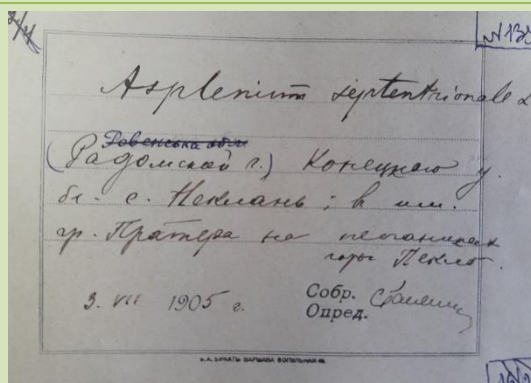 2/4
№ 13
Asplenium septentrionale L
Ровенська обл
(Радомской г.) Конецкого у.
бл. с. Неклань; в им.
гр. Пратера на песчаниках
горы Пекло.
3. VII 1905 г.
Собр.
Опред.